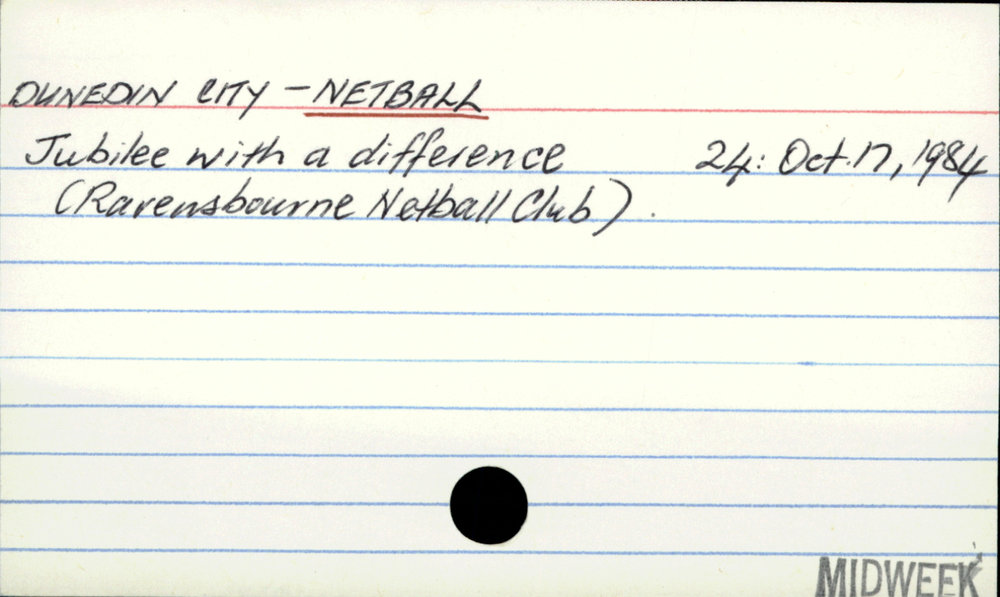 DUNEDIN CITY - NETBALL
Jubilee with a difference 24: Oct. 17, 1984
(Ravensbourne Netball Club).
MIDWEEK